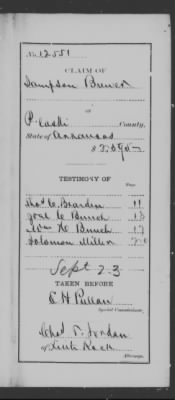 No. 12551
CLAIM OF
Sampson Brewer
OF
Pulaski County,
State of Arkansas
$
TESTIMONY OF
Page
11
Joel C Bunch 13
Wm H. Bunch 17
Solomon Miller
Sept 23
TAKEN BEFORE
E H Pullan
Special Commissioner.
Chas T. Jordan
of Little Rock
Attorney.